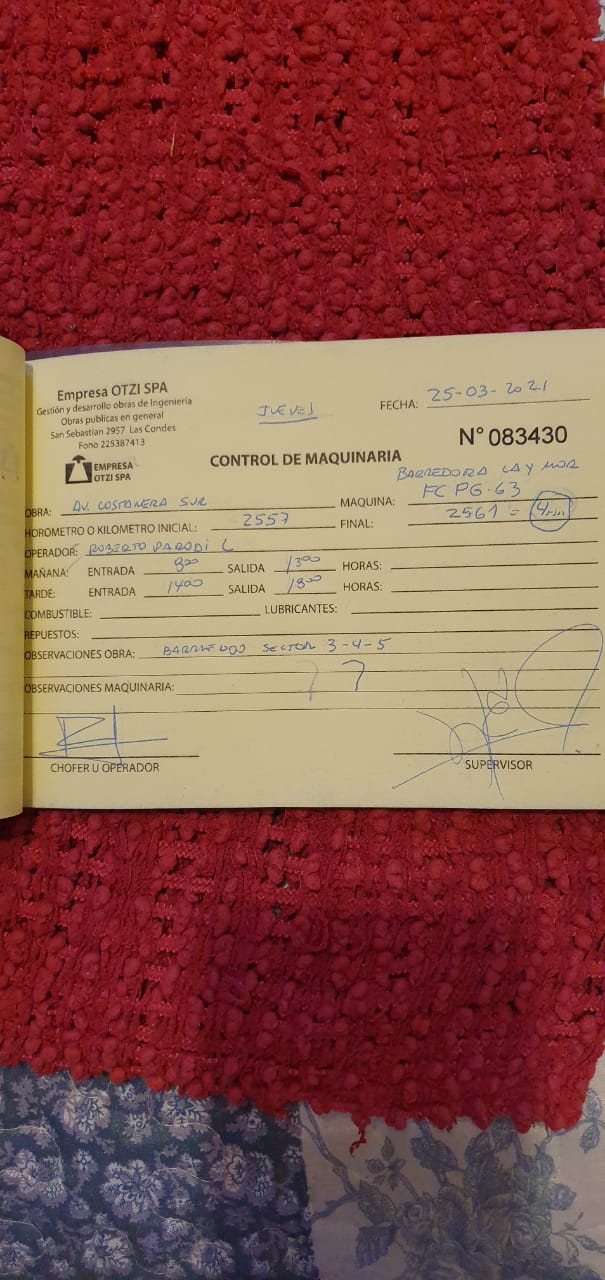 Empresa OTZI SPA
Gestión y desarrollo obras de Ingenieria
Obras publicas en general
San Sebastian 2957 Las Condes
Fono 225387413
EMPRESA
OTZI SPA
JUEVES
FECHA: 25-03-2021
N° 083430
CONTROL DE MAQUINARIA
BARREDORA LAY MOR
OBRA: AV. COSTANERA SUR MAQUINA: FC PG-63
HOROMETRO O KILOMETRO INICIAL: 2557 FINAL: 2561 = 4
OPERADOR: ROBERTO PARODI L
MAÑANA: ENTRADA 800 SALIDA 1300 HORAS:
TARDE: ENTRADA 1400 SALIDA 1800 HORAS:
COMBUSTIBLE: LUBRICANTES:
REPUESTOS:
OBSERVACIONES OBRA: BARREDOS SECTOR 3-4-5
OBSERVACIONES MAQUINARIA:
CHOFER U OPERADOR
SUPERVISOR